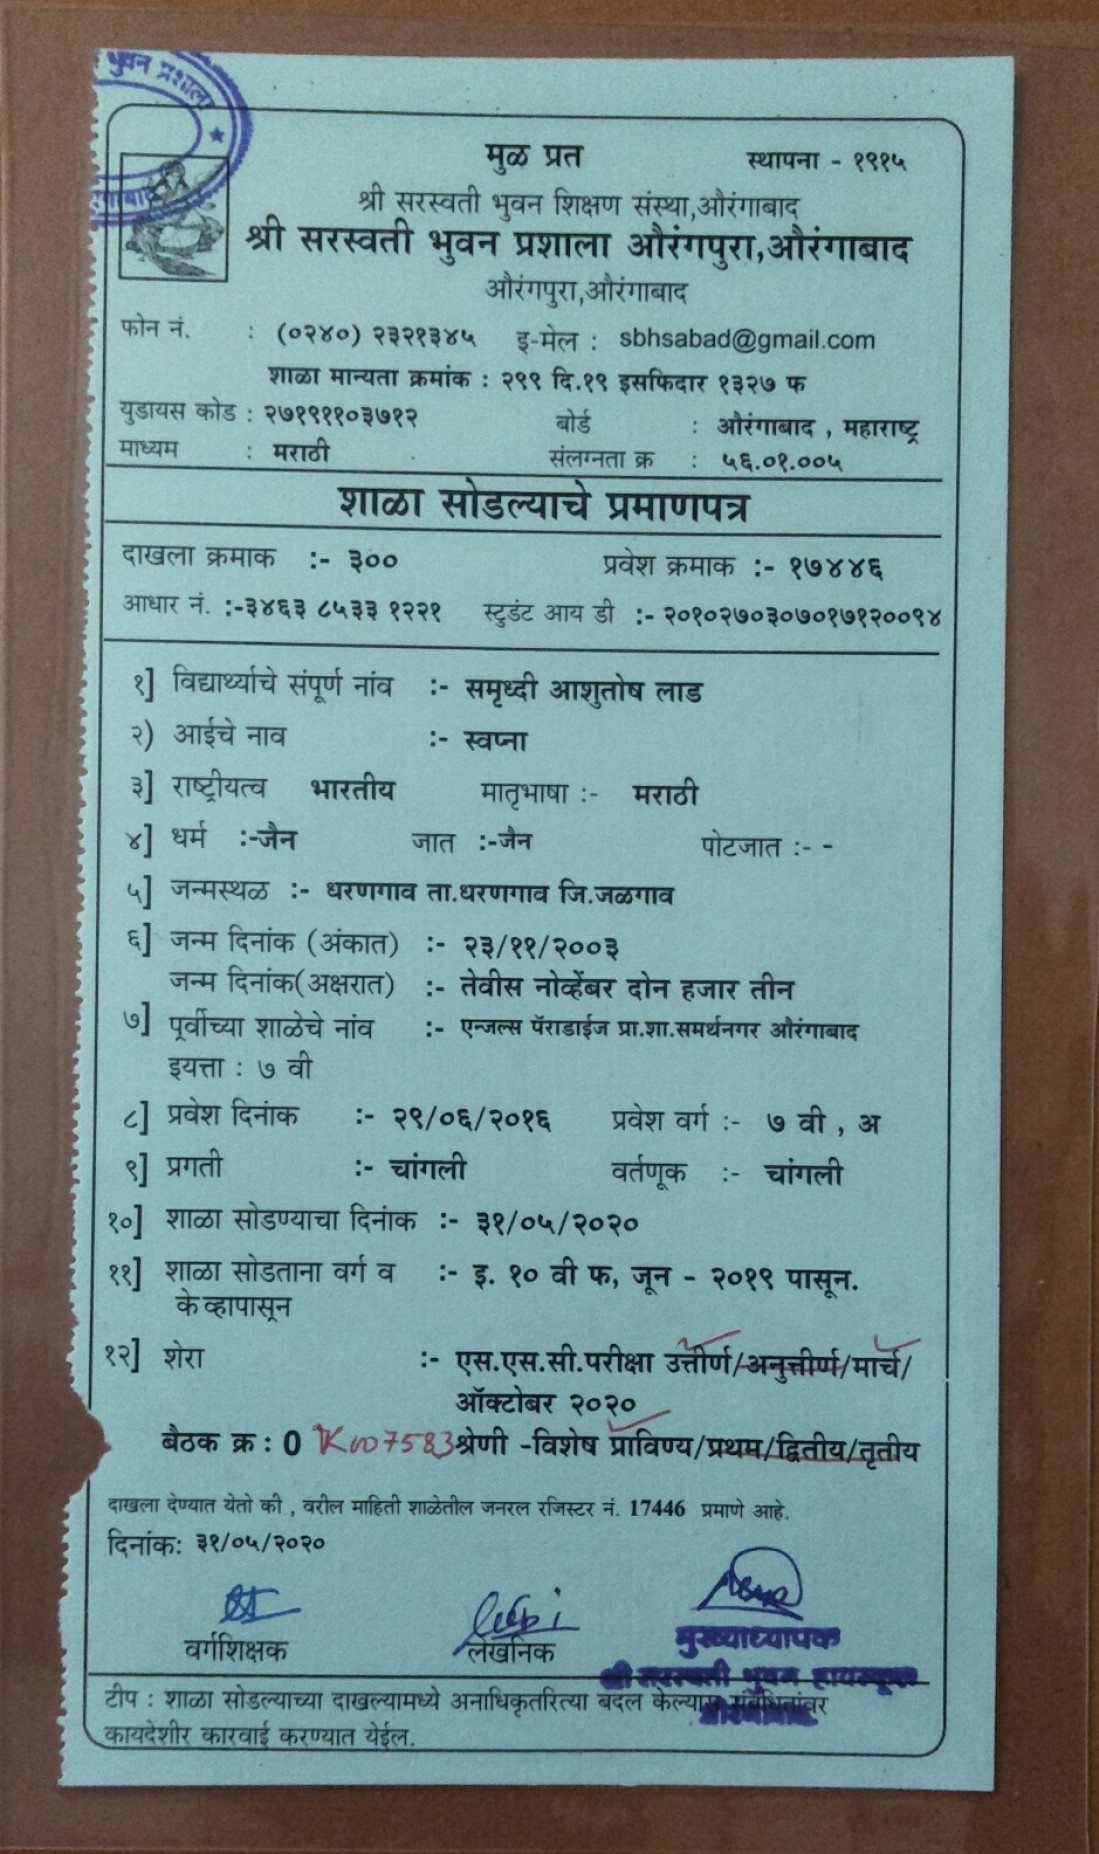 भुवन प्रशाला
मुळ प्रत स्थापना - १९१५
श्री सरस्वती भुवन शिक्षण संस्था,औरंगाबाद
श्री सरस्वती भुवन प्रशाला औरंगपुरा,औरंगाबाद
औरंगपुरा,औरंगाबाद
फोन नं. : (०२४०) २३२१३४५ इ-मेल : sbhsabad@gmail.com
शाळा मान्यता क्रमांक : २९९ दि.१९ इसफिदार १३२७ फ
युडायस कोड : २७१९११०३७१२ बोर्ड : औरंगाबाद , महाराष्ट्र
माध्यम : मराठी संलग्नता क्र : ५६.०१.००५
शाळा सोडल्याचे प्रमाणपत्र
दाखला क्रमाक :- ३०० प्रवेश क्रमाक :- १७४४६
आधार नं. :-३४६३ ८५३३ १२२१ स्टुडंट आय डी :- २०१०२७०३०७०१७१२००९४
१] विद्यार्थ्याचे संपूर्ण नांव :- समृध्दी आशुतोष लाड
२) आईचे नाव :- स्वप्ना
३] राष्ट्रीयत्व भारतीय मातृभाषा :- मराठी
४] धर्म :-जैन जात :-जैन पोटजात :- -
५] जन्मस्थळ :- धरणगाव ता.धरणगाव जि.जळगाव
६] जन्म दिनांक (अंकात) :- २३/११/२००३
जन्म दिनांक(अक्षरात) :- तेवीस नोव्हेंबर दोन हजार तीन
७] पूर्वीच्या शाळेचे नांव :- एन्जल्स पॅराडाईज प्रा.शा.समर्थनगर औरंगाबाद
इयत्ता : ७ वी
८] प्रवेश दिनांक :- २९/०६/२०१६ प्रवेश वर्ग :- ७ वी , अ
९] प्रगती :- चांगली वर्तणूक :- चांगली
१०] शाळा सोडण्याचा दिनांक :- ३१/०५/२०२०
११] शाळा सोडताना वर्ग व :- इ. १० वी फ, जून - २०१९ पासून.
केव्हापासून
१२] शेरा :- एस.एस.सी.परीक्षा उत्तीर्ण/अनुत्तीर्ण/मार्च/
ऑक्टोबर २०२०
बैठक क्र : 0 K007583 श्रेणी -विशेष प्राविण्य/प्रथम/द्वितीय/तृतीय
दाखला देण्यात येतो की , वरील माहिती शाळेतील जनरल रजिस्टर नं. 17446 प्रमाणे आहे.
दिनांक: ३१/०५/२०२०
वर्गशिक्षक लेखनिक मुख्याध्यापक
श्री सरस्वती भुवन हायस्कूल
टीप : शाळा सोडल्याच्या दाखल्यामध्ये अनाधिकृतरित्या बदल केल्यास संबंधितांवर
कायदेशीर कारवाई करण्यात येईल.